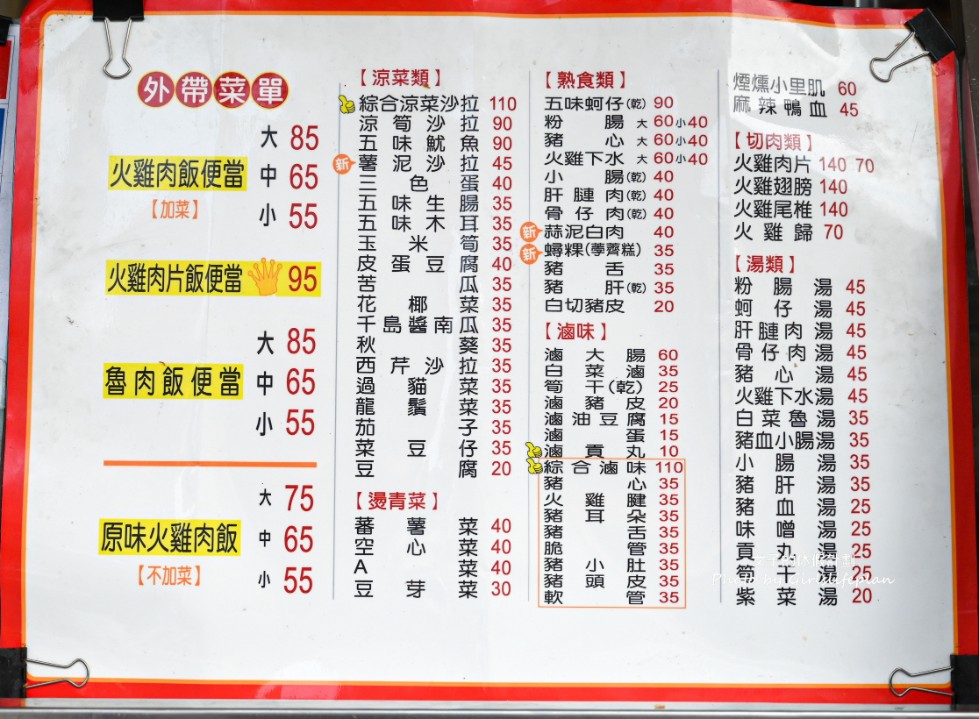 外帶菜單
大 85
火雞肉飯便當 中 65
【加菜】 小 55
火雞肉片飯便當 95
大 85
魯肉飯便當 中 65
小 55
大 75
原味火雞肉飯 中 65
【不加菜】 小 55
【涼菜類】
綜合涼菜沙拉 110
涼筍沙拉 90
五味魷魚 90
新 薯泥沙拉 45
三色蛋 40
五味生腸 35
五味木耳 35
玉米筍 35
皮蛋豆腐 40
苦瓜 35
花椰菜 35
千島醬南瓜 35
秋葵 35
西芹沙拉 35
過貓菜 35
龍鬚菜 35
茄子 35
菜豆仔 35
豆腐 20
【燙青菜】
蕃薯菜 40
空心菜 40
A菜 40
豆芽菜 30
【熟食類】
五味蚵仔(乾) 90
粉腸 大 60 小 40
豬心 大 60 小 40
火雞下水 大 60 小 40
小腸(乾) 40
肝膁肉(乾) 40
骨仔肉(乾) 40
新 蒜泥白肉 40
新 蟳粿(荸薺糕) 35
豬舌 35
豬肝(乾) 35
白切豬皮 20
【滷味】
滷大腸 60
白菜滷 35
筍干(乾) 25
滷豬皮 20
滷油豆腐 15
滷蛋 15
滷貢丸 10
綜合滷味 110
豬心 35
火雞腱 35
豬耳朵 35
豬舌 35
脆管 35
豬小肚 35
豬頭皮 35
軟管 35
煙燻小里肌 60
麻辣鴨血 45
【切肉類】
火雞肉片 140 70
火雞翅膀 140
火雞尾椎 140
火雞歸 70
【湯類】
粉腸湯 45
蚵仔湯 45
肝膁肉湯 45
骨仔肉湯 45
豬心湯 45
火雞下水湯 45
白菜魯湯 35
豬血小腸湯 35
小腸湯 35
豬肝湯 35
豬血湯 25
味噌湯 25
貢丸湯 25
筍干湯 25
紫菜湯 20